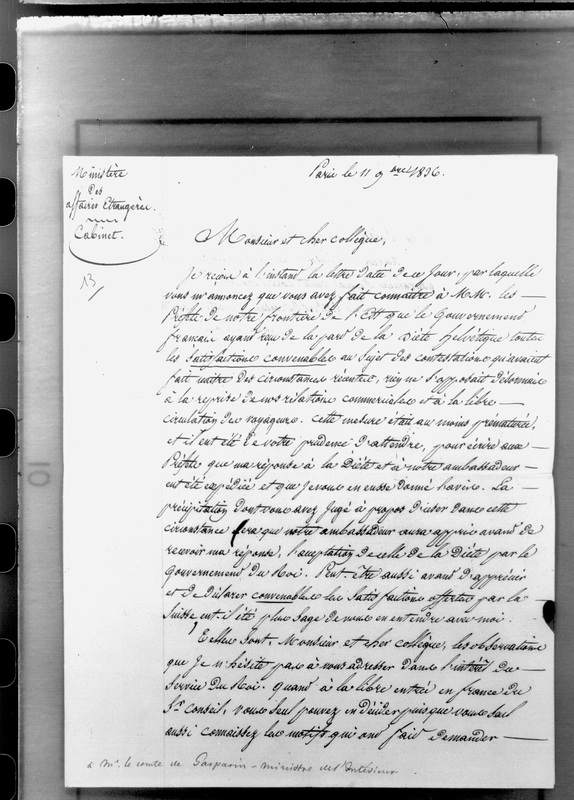 Ministère
Des
affaires Etrangères.
Cabinet.
Paris le 11 9bre 1836.
13
Monsieur et cher collègue,
Je reçois à l'instant la lettre datée de ce Jour, par laquelle
vous m'annoncez que vous avez fait connaître à M.M. les
Préfets de notre frontière de l'Est que le Gouvernement
français ayant reçu de la part de la Diète helvétique toutes
les satisfactions convenables au sujet des contestations qu'avaient
fait naître des circonstances récentes, rien ne s'opposait désormais
à la reprise de nos relations commerciales et à la libre
circulation des voyageurs. Cette mesure était au moins prématurée,
et il eut été de votre prudence d'attendre, pour écrire aux
Préfets que ma réponse à la Diète et à notre ambassadeur
eut été expédiée et que je vous en eusse donné l'avis. La
précipitation dont vous avez jugé à propos d'user dans cette
circonstance fera que notre ambassadeur aura appris avant de
recevoir ma réponse, l'acceptation de celle de la Diète par le
Gouvernement du Roi. Peut-être aussi avant d'apprécier
et de déclarer convenables les satisfactions offertes par la
Suisse eut-il été plus sage de vous en entendre avec moi.
Telles sont, Monsieur et cher collègue, les observations
que je n'hésite pas à vous adresser dans l'intérêt du
service du Roi. Quand à la libre entrée en france du
Sr. Conseil, vous seul pouvez en décider puisque vous seul
aussi connaissez les motifs qui ont fait demander
à Mr. le comte de Gasparin - ministre de l'Intérieur.